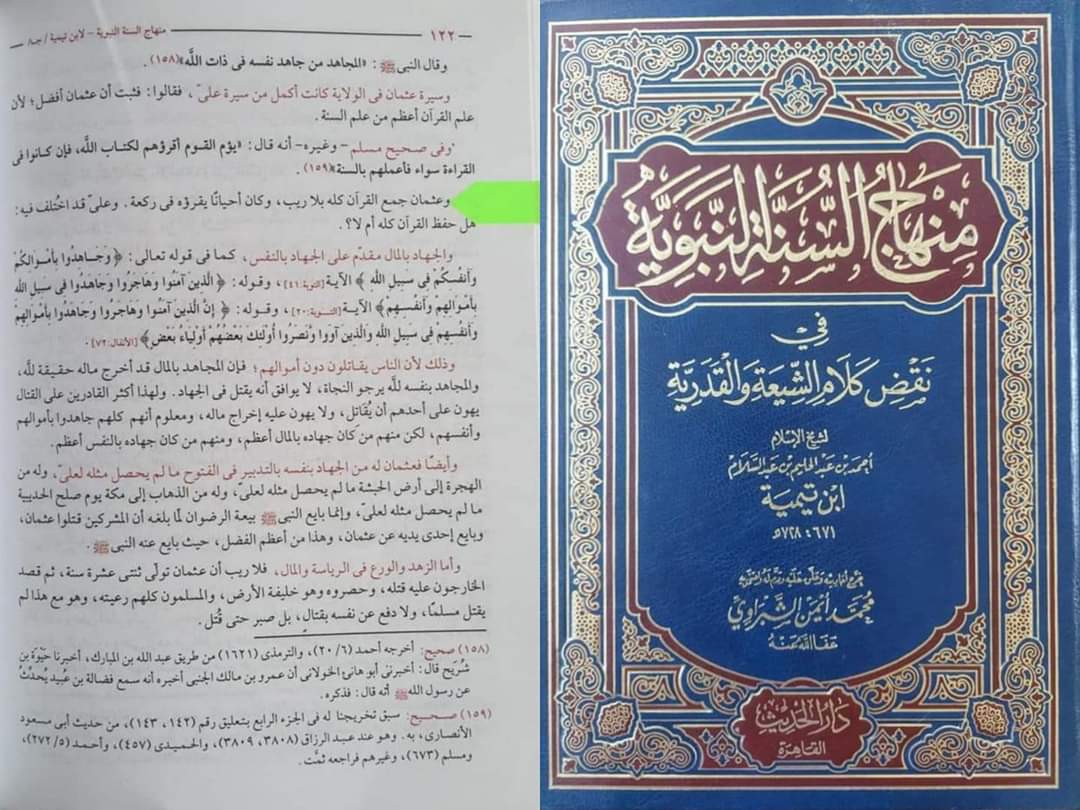 — ١٢٢
منهاج السنة النبوية - لابن تيمية / جـ٨
وقال النبى ﷺ : «المجاهد من جاهد نفسه فى ذات اللَّه»(١٥٨).
وسيرة عثمان فى الولاية كانت أكمل من سيرة علىّ ، فقالوا: فثبت أن عثمان أفضل؛ لأن
علم القرآن أعظم من علم السنة .
وفى صحيح مسلم - وغيره- أنه قال: «يؤم القوم أقرؤهم لكتاب اللَّه، فإن كانوا فى
القراءة سواء فأعلمهم بالسنة»(١٥٩).
وعثمان جمع القرآن كله بلا ريب، وكان أحيانًا يقرؤه فى ركعة . وعلىّ قد اختُلف فيه:
هل حفظ القرآن كله أم لا؟ .
والجهاد بالمال مقدّم على الجهاد بالنفس، كما فى قوله تعالى: ﴿وَجَـاهدُوا بأَمْـوَالكُمْ
وَأَنفُسكُمْ فى سَبيل اللَّه ﴾ الآية [التوبة:٤١] ، وقـوله: ﴿ الَّذينَ آمَنُوا وَهَاجَرُوا وَجَاهَدُوا فى سَبيل اللَّه
بأَمْوَالهمْ وَأَنفُسهمْ﴾ الآية [التـوبة:٢٠] ، وقوله: ﴿ إنَّ الَّذينَ آمَنُوا وَهَاجَرُوا وَجَاهَدُوا بأَمْوَالهمْ
وَأَنفُسهمْ فى سَبيل اللَّه وَالَّذينَ آوَوا وَّنَصَرُوا أُوْلَئكَ بَعْضُهُمْ أَوْليَاءُ بَعْضٍ﴾ [الأنفال:٧٢] .
وذلك لأن الناس يقاتلون دون أموالهم؛ فإن المجاهد بالمال قد أخرج ماله حقيقة للَّه،
والمجاهد بنفسه للَّه يرجو النجاة، لا يوافق أنه يقتل فى الجهاد. ولهذا أكثر القادرين على القتال
يهون على أحدهم أن يُقَاتل، ولا يهون عليه إخراج ماله، ومعلوم أنهم كلهم جاهدوا بأموالهم
وأنفسهم، لكن منهم من كان جهاده بالمال أعظم، ومنهم من كان جهاده بالنفس أعظم.
وأيضًا فعثمان له من الجهاد بنفسه بالتدبير فى الفتوح ما لم يحصل مثله لعلىّ، وله من
الهجرة إلى أرض الحبشة ما لم يحصل مثله لعلىّ، وله من الذهاب إلى مكة يوم صلح الحديبية
ما لم يحصل مثله لعلىّ، وإنما بايع النبى ﷺ بيعة الرضوان لمّا بلغه أن المشركين قتلوا عثمان،
وبايع إحدى يديه عن عثمان، وهذا من أعظم الفضل، حيث بايع عنه النبى ﷺ .
وأما الزهد والورع فى الرياسة والمال، فلا ريب أن عثمان تولّى ثنتى عشرة سنة، ثم قصد
الخارجون عليه قتله، وحصروه وهو خليفة الأرض، والمسلمون كلهم رعيته، وهو مع هذا لم
يقتل مسلمًا، ولا دفع عن نفسه بقتال، بل صبر حتى قُتل.
(١٥٨) صحيح: أخرجه أحمد (٢٠/٦)، والترمذى (١٦٢١) من طريق عبد الله بن المبارك، أخبرنا حَيْوَة بن
شُرَيْح قال: أخبرنى أبو هانئ الخولانى أن عمرو بن مالك الجنبى أخبره أنه سمع فضالة بن عُبيد يُحدثُ
عن رسول الله ﷺ أنّه قال: فذكره.
(١٥٩) صـحـيـح: سبق تخريجنا له فى الجزء الرابع بتعليق رقم (١٤٢، ١٤٣)، من حديث أبى مسعود
الأنصارى، به. وهو عند عبد الرزاق (٣٨٠٨، ٣٨٠٩)، والحـميدى (٤٥٧)، وأحمد (٢٧٢/٥)،
ومسلم (٦٧٣)، وغيرهم فراجعه ثمَّت.
منهاج السُّنَّة النَّبَوِيَّة
في
نَقْضِ كَلَامِ الشِّيعَةِ وَالْقَدَرِيَّةِ
لشيخ الإسلام
أحمد بن عبد الحليم بن عبد السلام
ابن تيمية
٦٧١ : ٧٢٨هـ
محمّد أيمن الشّبراوي
عفا الله عنه
دار الحديث
القاهرة